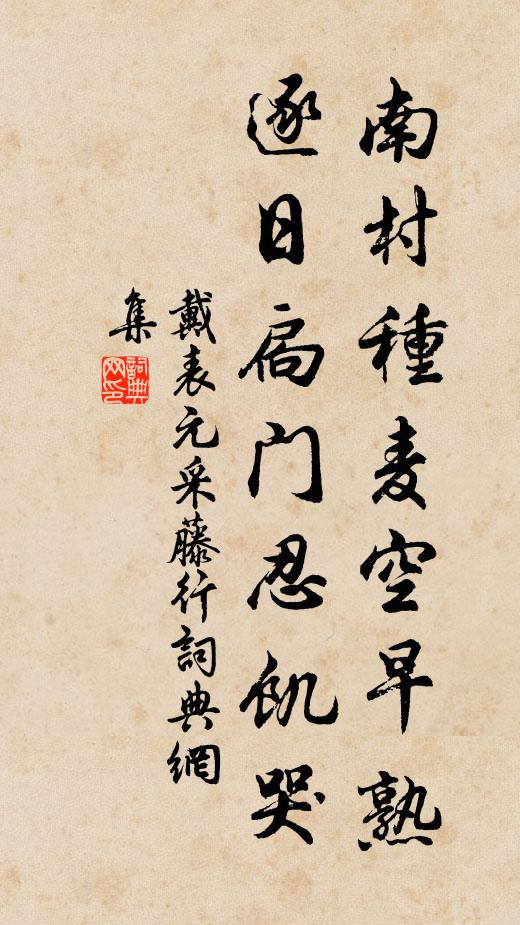 南村種麦空早熟
逐日扃門忍飢哭
戴表元采藤行詞典網
集
詞典
网印